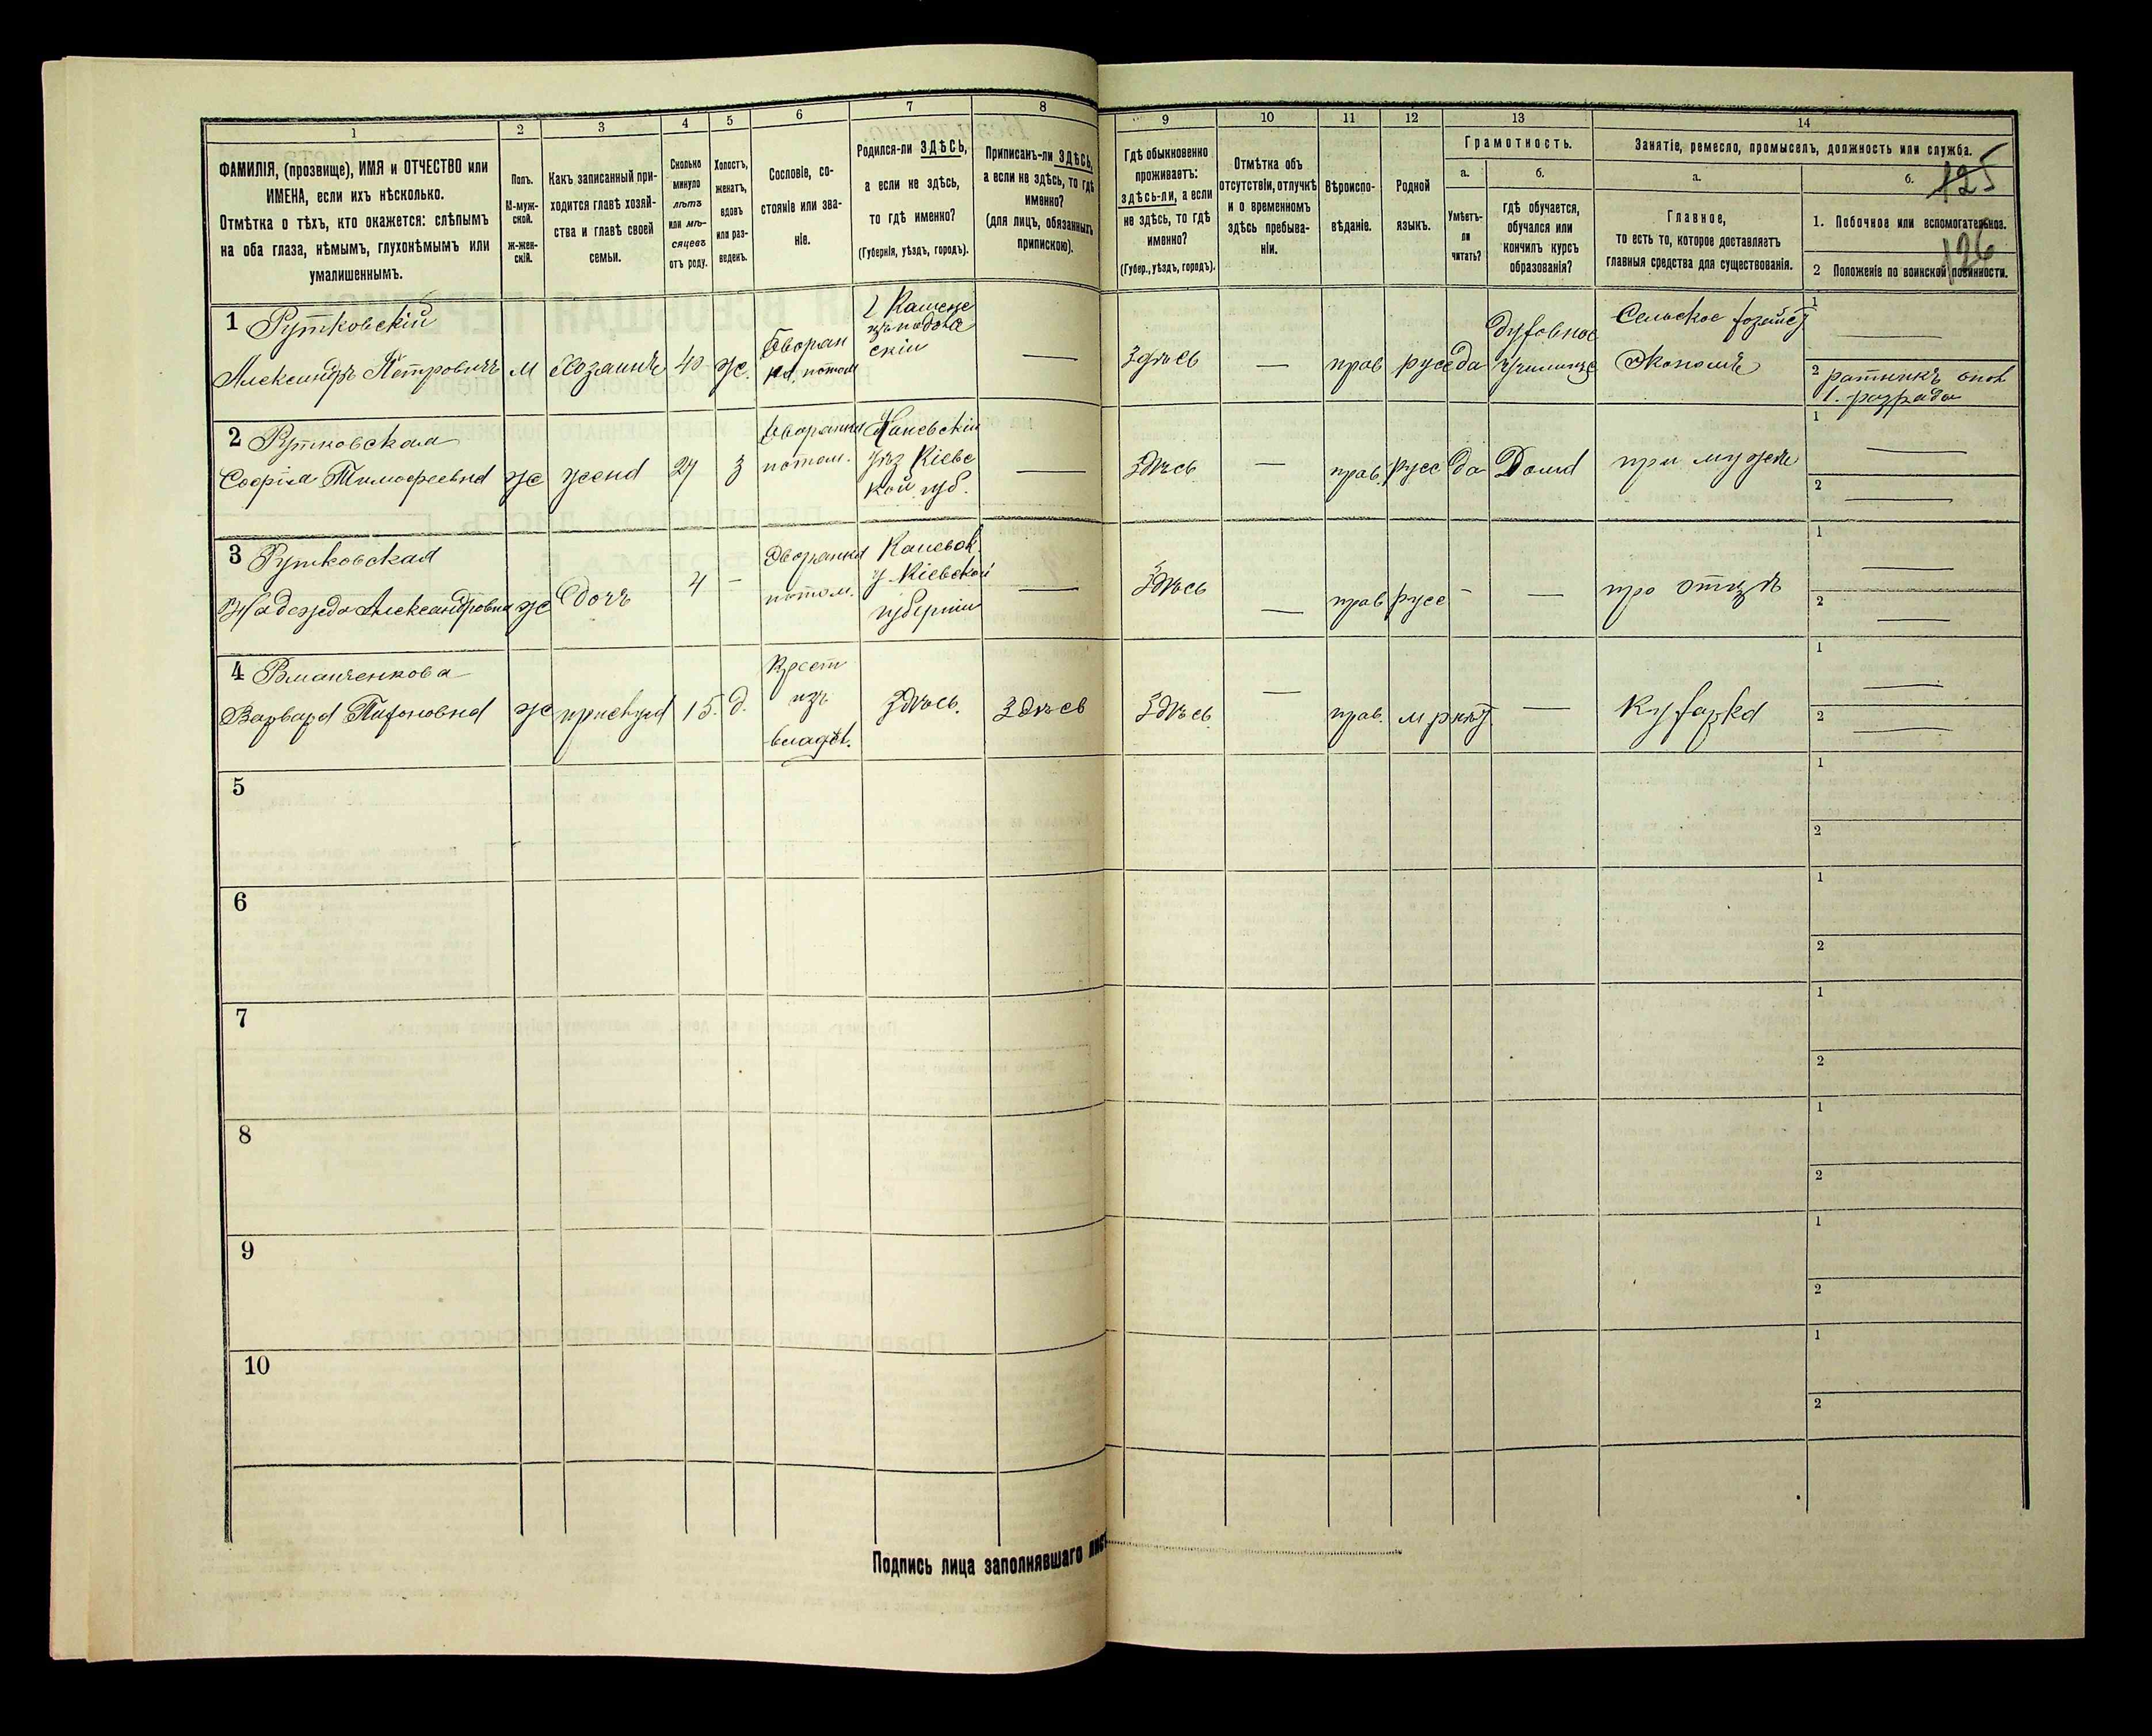 1
2
3
4
5
6
7
8
9
10
11
12
13
14
ФАМИЛІЯ, (прозвище), ИМЯ и ОТЧЕСТВО или
ИМЕНА, если ихъ нѣсколько.
Отмѣтка о тѣхъ, кто окажется: слѣпымъ
на оба глаза, нѣмымъ, глухонѣмымъ или
умалишеннымъ.
Полъ.
М-муж-
ской.
Ж-жен-
скій.
Какъ записанный при-
ходится главѣ хозяй-
ства и главѣ своей
семьи.
Сколько
минуло
лѣтъ
или мѣ-
сяцевъ
отъ роду.
Холостъ,
женатъ,
вдовъ
или раз-
веденъ.
Сословіе, со-
стояніе или зва-
ніе.
Родился-ли ЗДѢСЬ,
а если не здѣсь,
то гдѣ именно?
(Губернія, уѣздъ, городъ).
Приписанъ-ли ЗДѢСЬ,
а если не здѣсь, то гдѣ
именно?
(для лицъ, обязанныхъ
припискою).
Гдѣ обыкновенно
проживаетъ:
здѣсь-ли, а если
не здѣсь, то гдѣ
именно?
(Губер., уѣздъ, городъ).
Отмѣтка объ
отсутствіи, отлучкѣ
и о временномъ
здѣсь пребыва-
ніи.
Вѣроиспо-
вѣданіе.
Родной
языкъ.
Грамотность.
а.
Умѣетъ-
ли
читать?
б.
гдѣ обучается,
обучался или
кончилъ курсъ
образованія?
Занятіе, ремесло, промыселъ, должность или служба.
а.
Главное,
то есть то, которое доставляетъ
главныя средства для существованія.
б.
125
1. Побочное или вспомогательное.
126
2 Положеніе по воинской повинности.
1 Рутковскій
Александръ Петровичъ
м
хозяинъ
40
ж.
Дворян
потом
скій
—
здѣсь
—
прав
русс
да
духовное
училище
Сельское хозяйст
Экономъ
1
—
2 ратникъ опол
1. разряда
2 Рутковская
Софія Тимофеевна
ж
жена
27
з
Дворянка
потом.
Каневскій
уѣз Кіевс
кой губ.
—
здѣсь
—
прав.
русс
да
Дома
при мужѣ
1
—
2
—
3 Рутковская
Надежда Александровна
ж
Дочь
4
-
Дворянка
потом.
Каневск.
у. Кіевской
губерніи
—
здѣсь
—
прав
русс
-
—
при отцѣ
1
—
2
—
4
Варвара
ж
прислуга
15.
д.
Крест
изъ
владѣл.
Здѣсь.
Здѣсь
Здѣсь
—
прав.
м р
нѣт
—
Кухарка
1
—
2
—
5
1
2
6
1
2
7
1
2
8
1
2
9
1
2
10
1
2
Подпись лица заполнявшаго лис